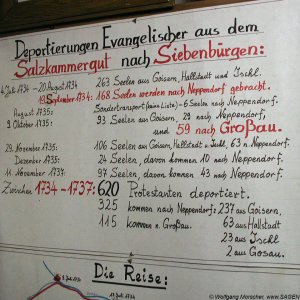 Deportierungen Evangelischer aus dem
Salzkammergut nach Siebenbürgen:
4. Juli 1734 - 20. August 1734 263 Seelen aus Goisern, Hallstadt und Ischl.
19. September 1734: 168 Seelen werden nach Neppendorf gebracht.
August 1735: Sondertransport (eine Liste) - 6 Seelen n. Neppendorf.
9. Oktober 1735: 93 Seelen aus Goisern, 29 nach Neppendorf,
und 59 nach Großau.
29. November 1735: 106 Seelen aus Goisern, Hallstadt u. Ischl, 63 n. Neppendorf.
Dezember 1735: 24 Seelen, davon kommen 10 nach Neppendorf.
11. November 1737: 97 Seelen, davon kommen 43 n. Neppendorf.
Zwischen 1734-1737: 620 Protestanten deportiert.
325 kommen nach Neppendorf: 237 aus Goisern,
115 kommen n. Großau. 63 aus Hallstadt
23 aus Ischl
2 aus Gosau.
Die Reise:
8. Juli 1734
© Wolfgang Morscher, www.SAGEN